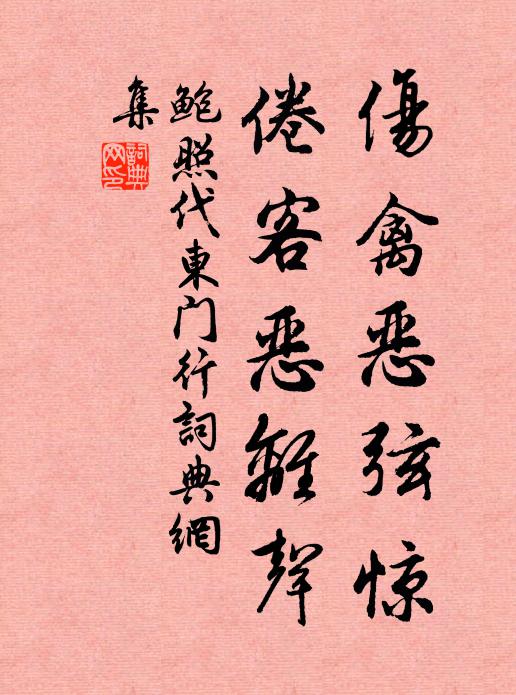 傷禽惡弦惊
倦客惡離聲
鮑照代東門行詞典網
集
詞典
网印